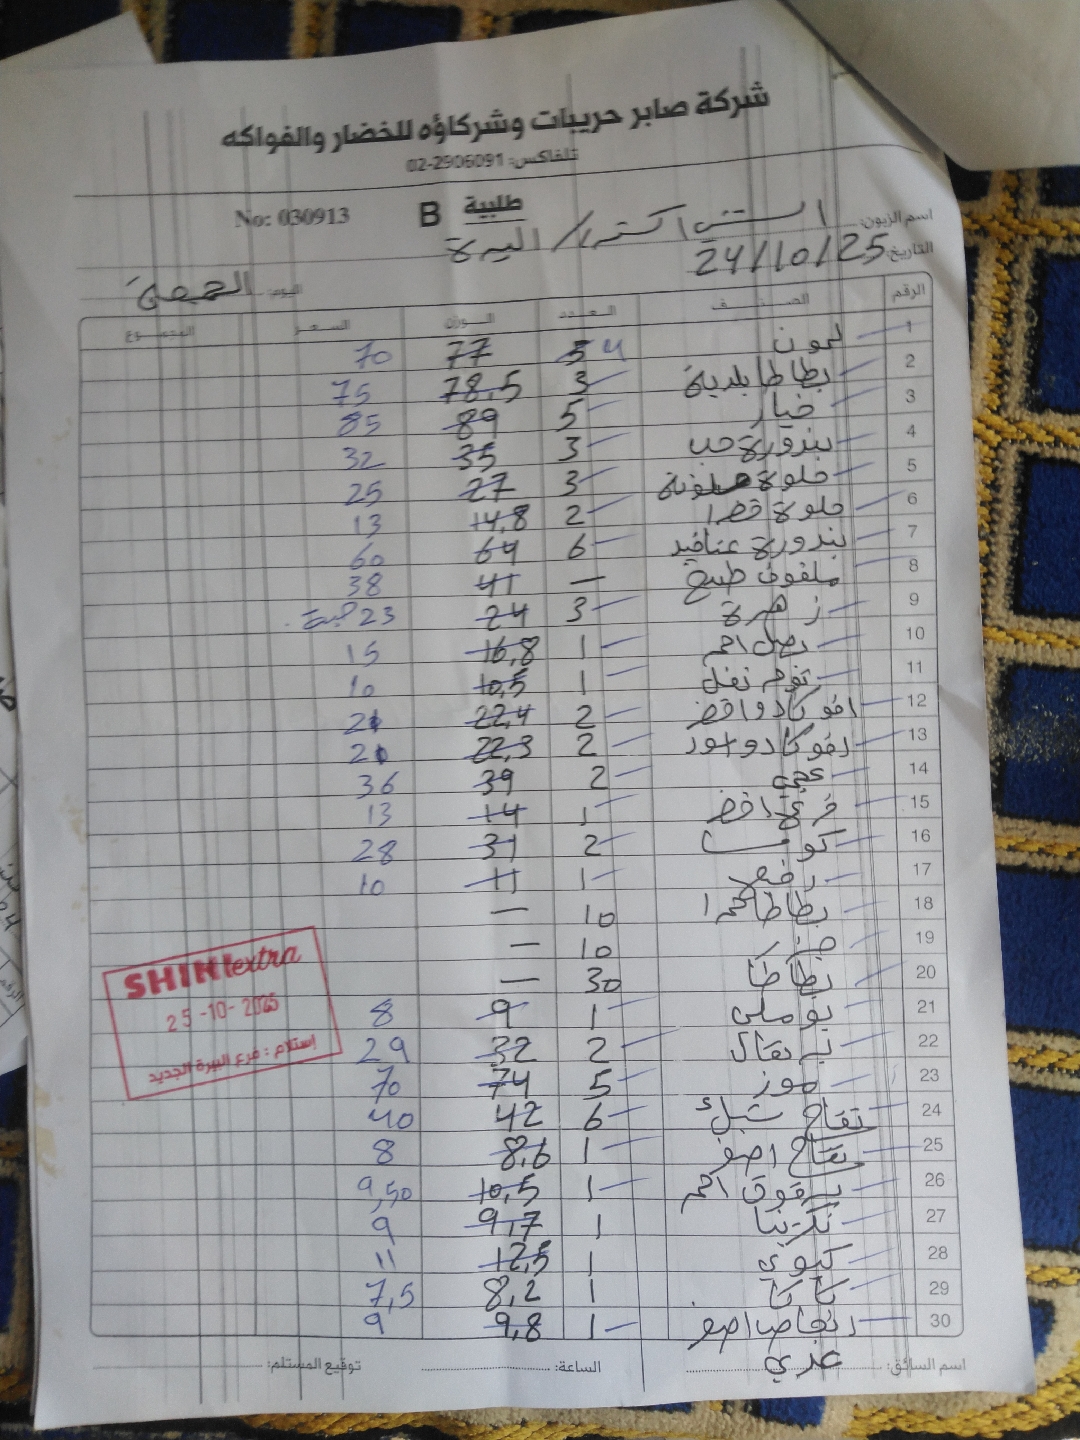 شركة صابر حريبات وشركاؤه للخضار والفواكه
تلفاكس: 02-2906091
No: 030913 B طلبية
اسم الزبون: اكسترا / البيرة
التاريخ: 24/10/25
اليوم: الجمعة
الرقم الصنف العدد الوزن السعر المجموع
1 ليمون 4 77 70
2 بطاطا بلدية 3 78,5 75
3 خيار 5 89 85
4 بندورة حب 3 35 32
5 حلوة ملونة 3 27 25
6 حلوة خضرا 2 14,8 13
7 بندورة عناقيد 6 64 60
8 ملفوف طبيخ — 41 38
9 زهرة 3 24 23 حبة
10 بصل احمر 1 16,8 15
11 ثوم نفل 1 10,5 10
12 افوكادو اخضر 2 22,4 21
13 افوكادو اسود 2 22,3 21
14 2 39 36
15 1 14 13
16 كوسا 2 31 28
17 1 11 10
18 بطاطا حمرا 10 —
19 10 —
20 بطاطا 30 —
21 بوملي 1 9 8
22 برتقال 2 32 29
23 موز 5 74 70
24 تفاح 6 42 40
25 تفاح اصفر 1 8,6 8
26 برقوق احمر 1 10,5 9,50
27 نكرينا 1 9,7 9
28 كيوي 1 12,5 11
29 كاكا 1 8,2 7,5
30 انجاص اصفر 1 9,8 9
SHINI extra
25-10-2025
إستلام: فرع البيرة الجديد
اسم السائق: عدي الساعة: توقيع المستلم: